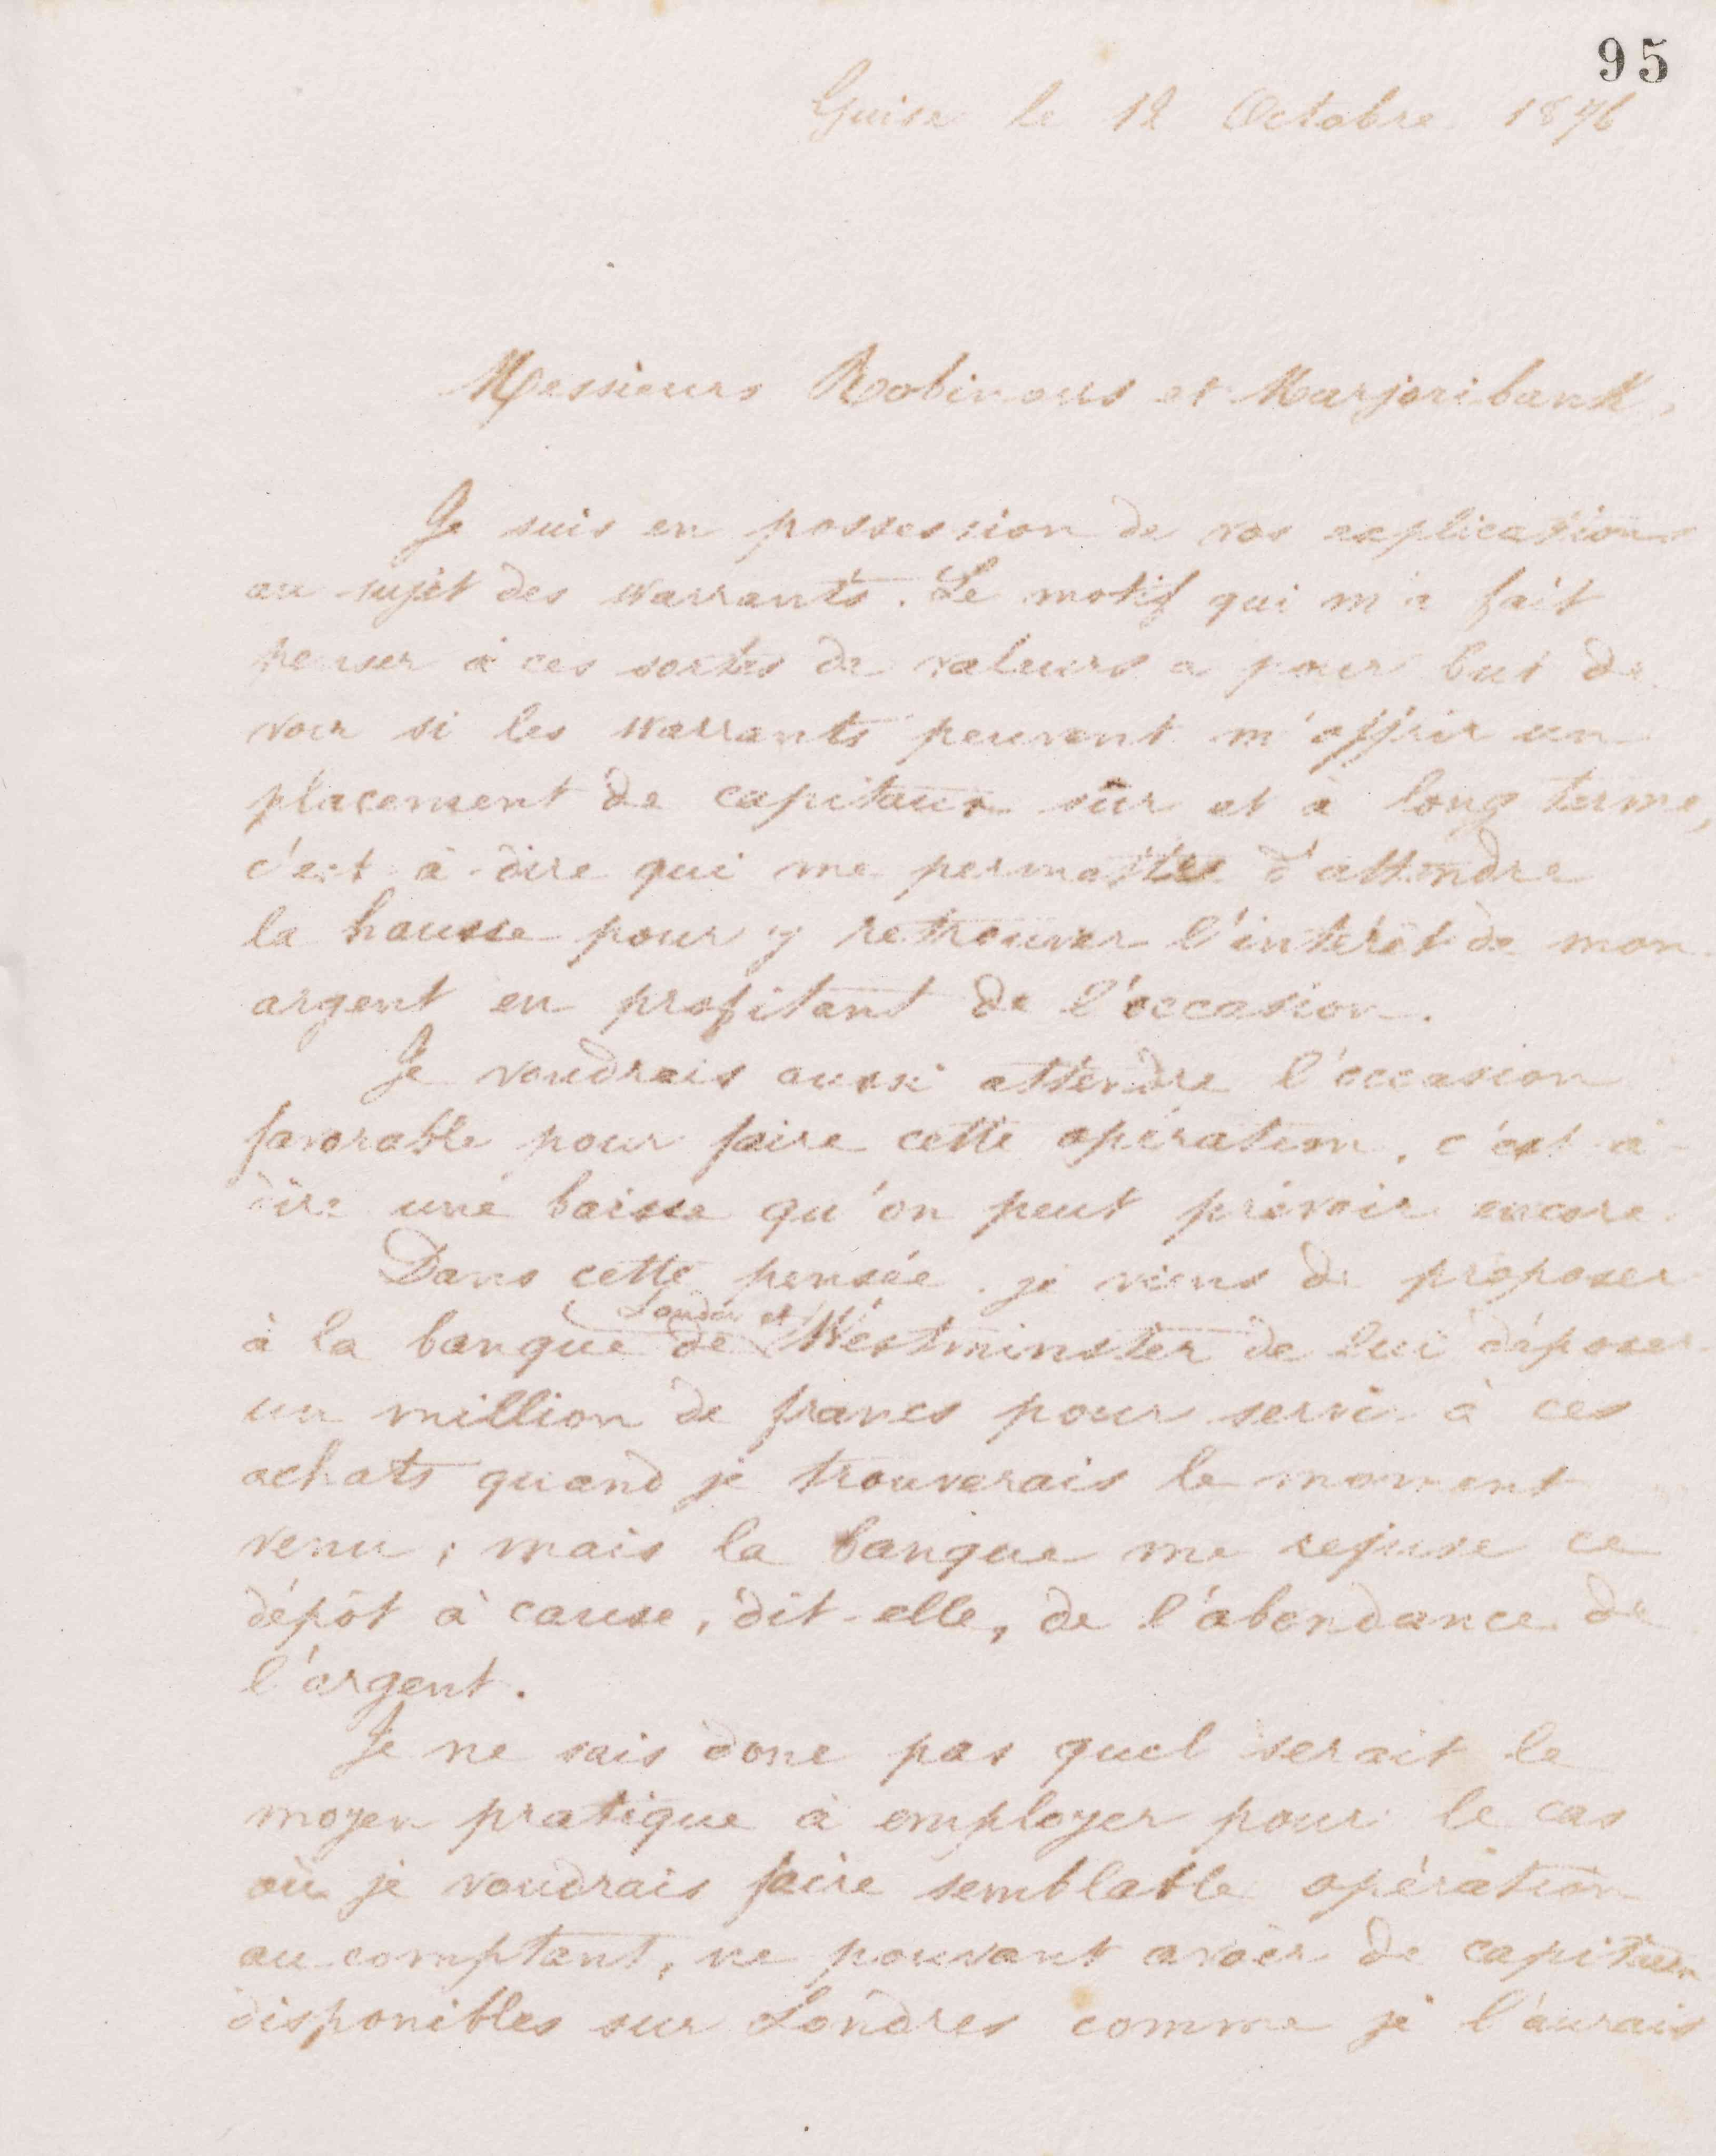 95
Guise le 12 Octobre 1876
Messieurs Robinows et Marjoribank,
Je suis en possession de vos explications
au sujet des warrants. Le motif qui m'a fait
penser à ces sortes de valeurs a pour but de
voir si les warrants peuvent m'offrir un
placement de capitaux sûr et à long terme,
c'est à dire qui me permette d'attendre
la hausse pour y retrouver l'intérêt de mon
argent en profitant de l'occasion.
Je voudrais aussi attendre l'occasion
favorable pour faire cette opération, c'est à
dire une baisse qu'on peut prévoir encore.
Dans cette pensée je viens de proposer
London et
à la banque de Westminster de lui déposer
un million de francs pour servir à ces
achats quand je trouverais le moment
venu ; mais la banque me refuse ce
dépôt à cause, dit-elle, de l'abondance de
l'argent.
Je ne sais donc pas quel serait le
moyen pratique à employer pour le cas
où je voudrais faire semblable opération
au comptant, ne pouvant avoir de capitaux
disponibles sur Londres comme je l'aurais